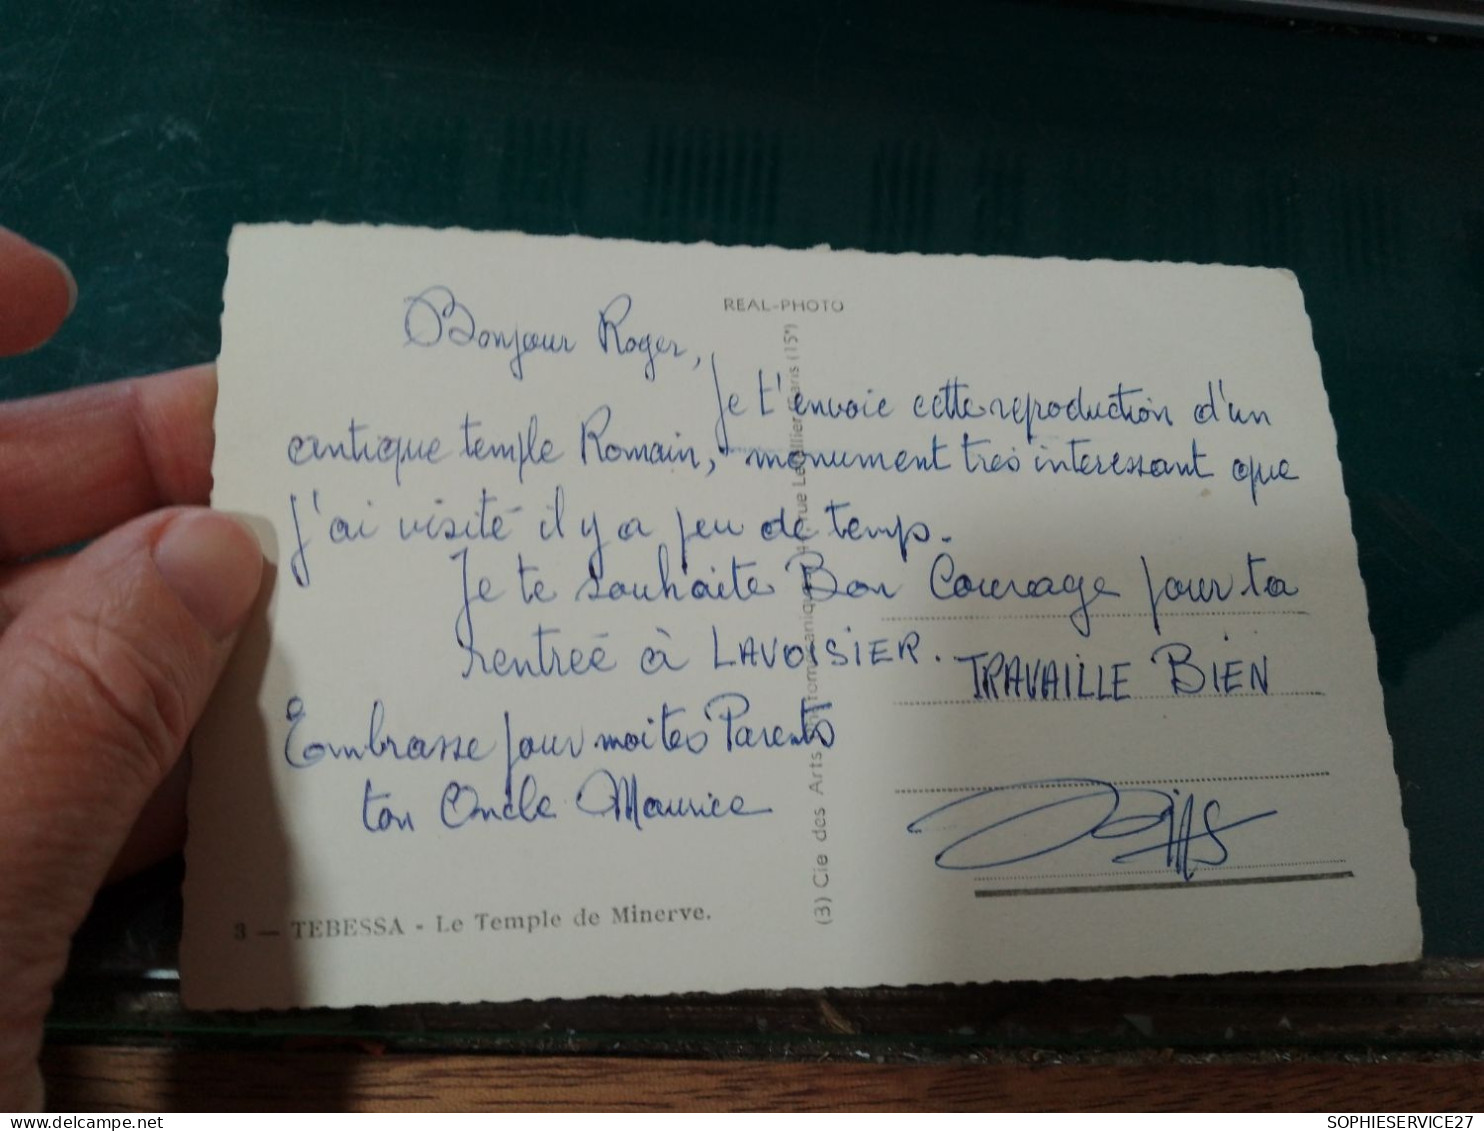 REAL-PHOTO
Bonjour Roger,
Je t'envoie cette reproduction d'un
antique temple Romain, monument très intéressant que
j'ai visité il y a peu de temps.
Je te souhaite Bon Courage pour ta
rentrée à LAVOISIER. TRAVAILLE BIEN
Embrasse pour moi tes Parents
ton Oncle Maurice
3 — TEBESSA - Le Temple de Minerve.
(3) Cie des Arts rue Letellier Paris (15e)
SOPHIESERVICE27